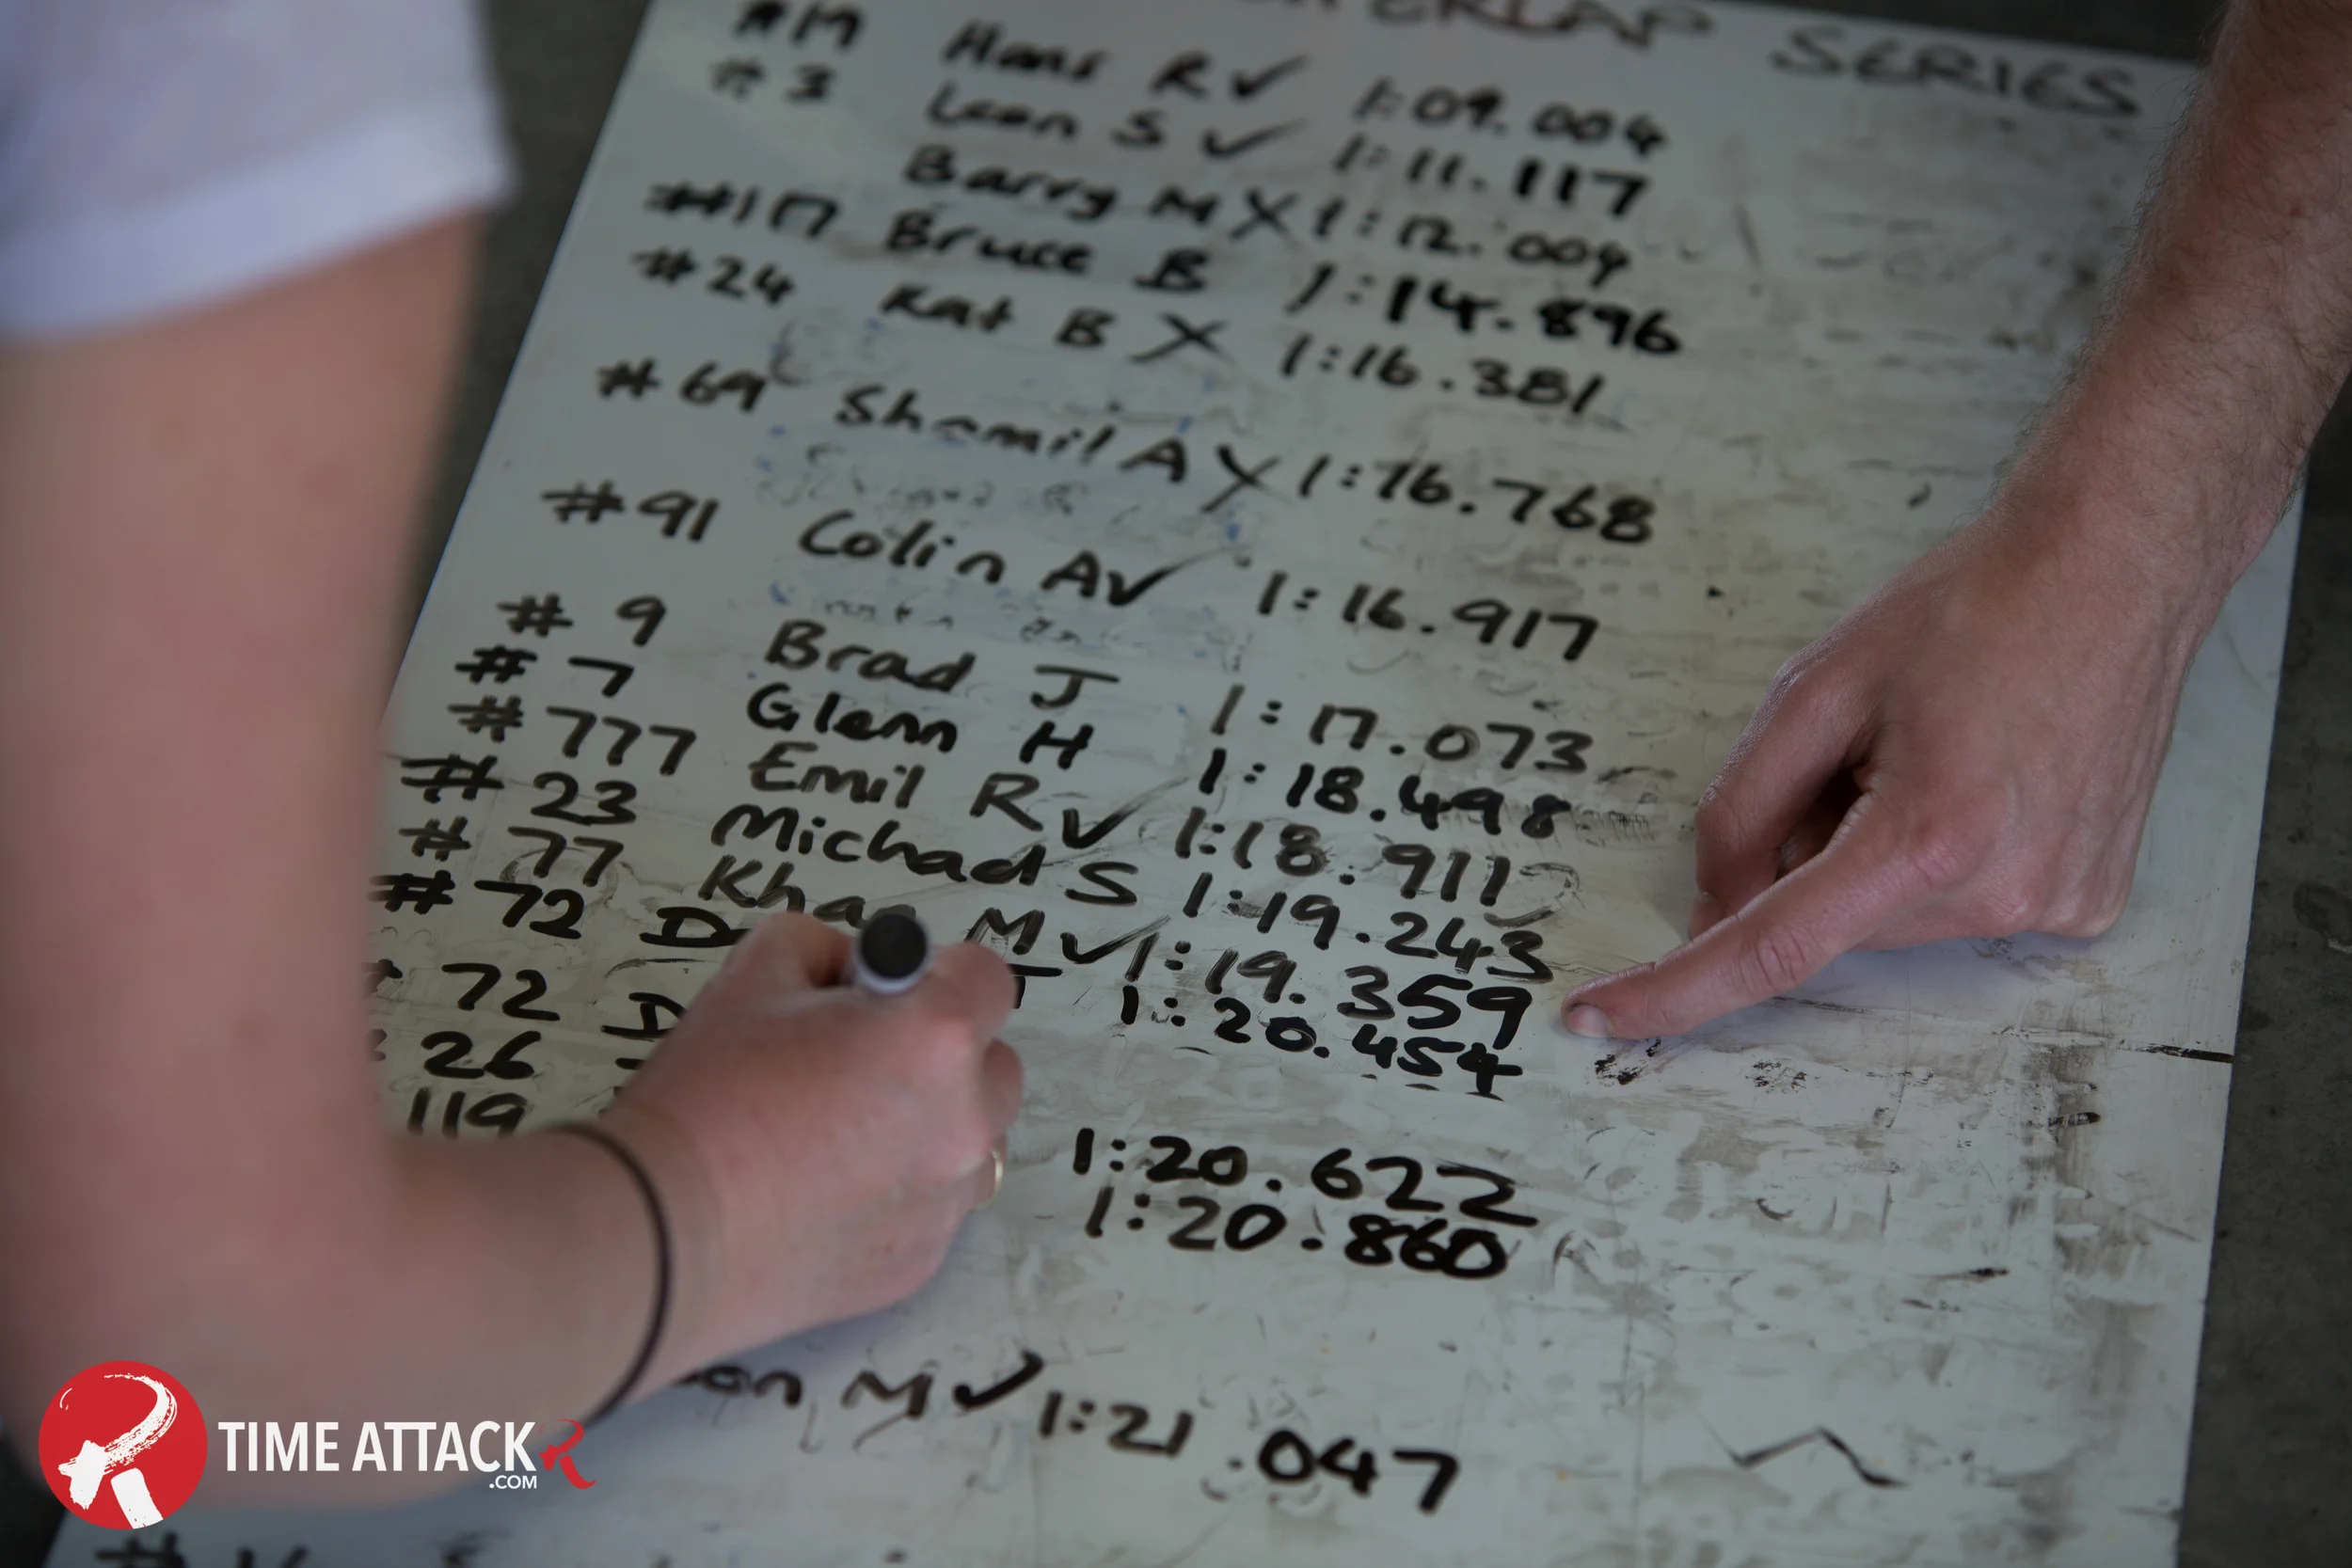 SERIES
#19 Hans R ✓ 1:09.004
#3 Leon S ✓ 1:11.117
Barry M X 1:12.004
##117 Bruce B 1:14.896
#24 Kat B X 1:16.381
#69 Shamil A X 1:16.768
#91 Colin A ✓ 1:16.917
#9 Brad J 1:17.073
#7 Glenn H 1:18.498
#777 Emil R ✓ 1:18.911
#23 Michael S 1:19.243
#77 M ✓ 1:19.359
#72 1:20.454
72
26 1:20.622
119 1:20.860
M ✓ 1:21.047
TIME ATTACK R
.COM